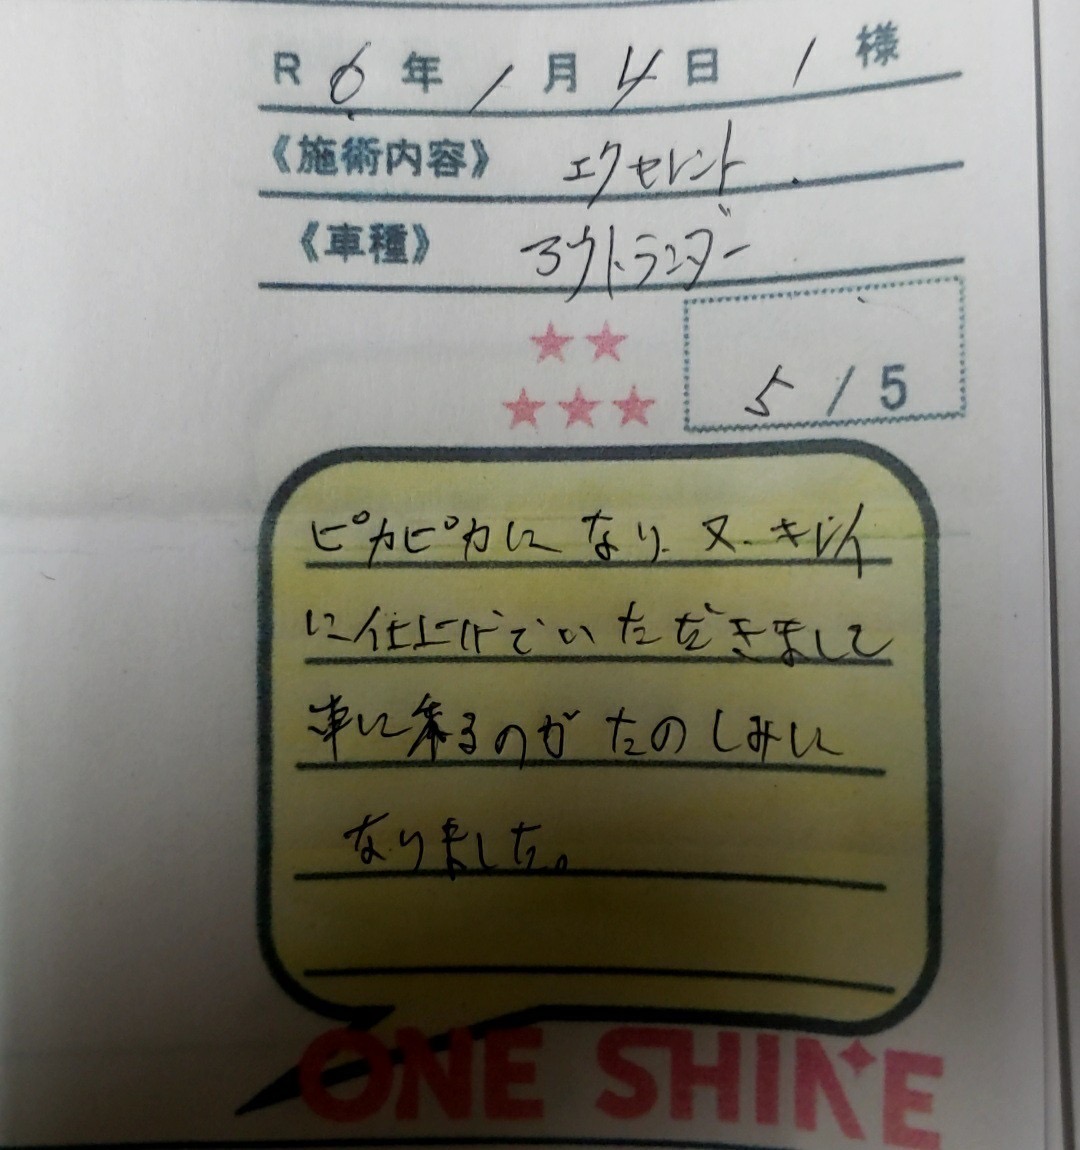 R 6 年 1 月 4 日 1 様
《施術内容》 エクセレント
《車種》 アウトランダー
5 / 5
ピカピカになり、又、キレイ
に仕上げていただきまして
車に乗るのがたのしみに
なりました。
ONE SHINE